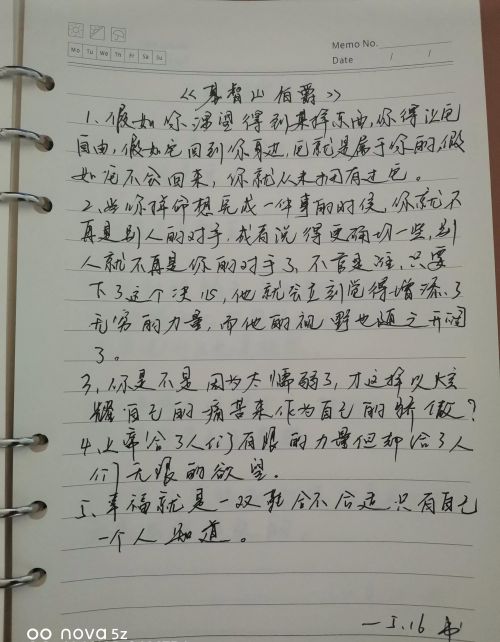 Mo Tu We Th Fr Sa Su
Memo No.
Date / /
《基督山伯爵》
1、假如你渴望得到某样东西,你得让它
自由,假如它回到你身边,它就是属于你的,假
如它不会回来,你就从未拥有过它。
2、当你拼命想完成一件事的时候,你就不
再是别人的对手,或者说得更确切一些,别
人就不再是你的对手了,不管是谁,只要
下了这个决心,他就会立刻觉得增添了
无穷的力量,而他的视野也随之开阔
了。
3、你是不是因为太懦弱了,才这样以炫
耀自己的痛苦来作为自己的骄傲?
4、上帝给了人们有限的力量但却给了人
们无限的欲望。
5、幸福就是一双鞋合不合适只有自己
一个人知道。
一5.16
nova 5z